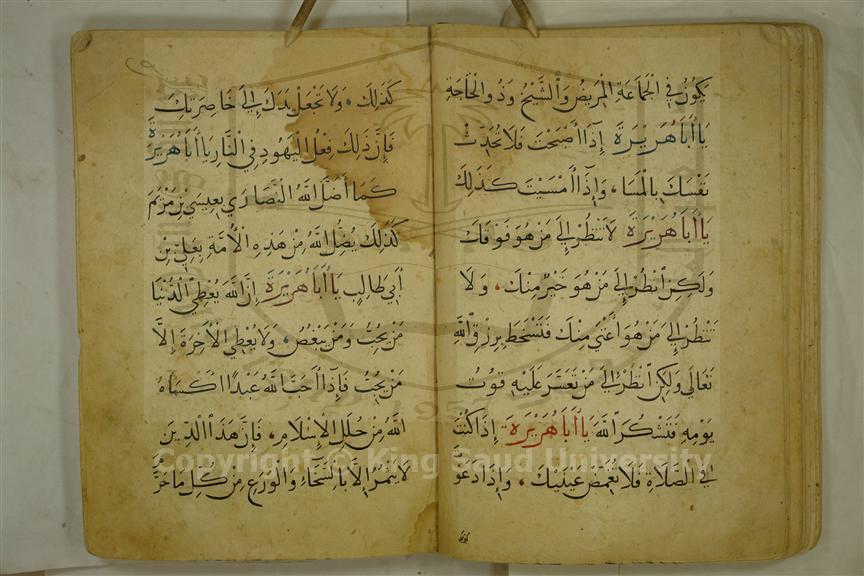 يكون في الجماعة المريض والشيخ وذو الحاجة
يا أبا هريرة إذا أصبحت فلا تحدث
نفسك بالمسا، وإذا أمسيت كذلك
يا أبا هريرة لا تنظر إلى من هو فوقك
ولكن انظر إلى من هو خير منك، ولا
تنظر إلى من هو أغنى منك فتسخط برزق الله
تعالى ولكن انظر إلى من تعسر عليه قوت
يومه فتشكر الله يا أبا هريرة إذا كنت
في الصلاة فلا تغمض عينيك، وإذا دعو
كذلك، ولا تجعل يدك إلى خاصرتك
فإن ذلك فعل اليهود في النار يا أبا هريرة
كما أضل الله النصارى بعيسى بن مريم
كذلك يضل الله من هذه الأمة بعلي بن
أبي طالب يا أبا هريرة إن الله يعطي الدنيا
من يحب ومن يبغض، ولا يعطي الآخرة إلا
من يحب فإذا أحب الله عبدا كساه
الله من حلل الإسلام، فإن هذا الدين
لا يتم إلا بالسخاء والورع من كل ما حرم
Copyright © King Saud University